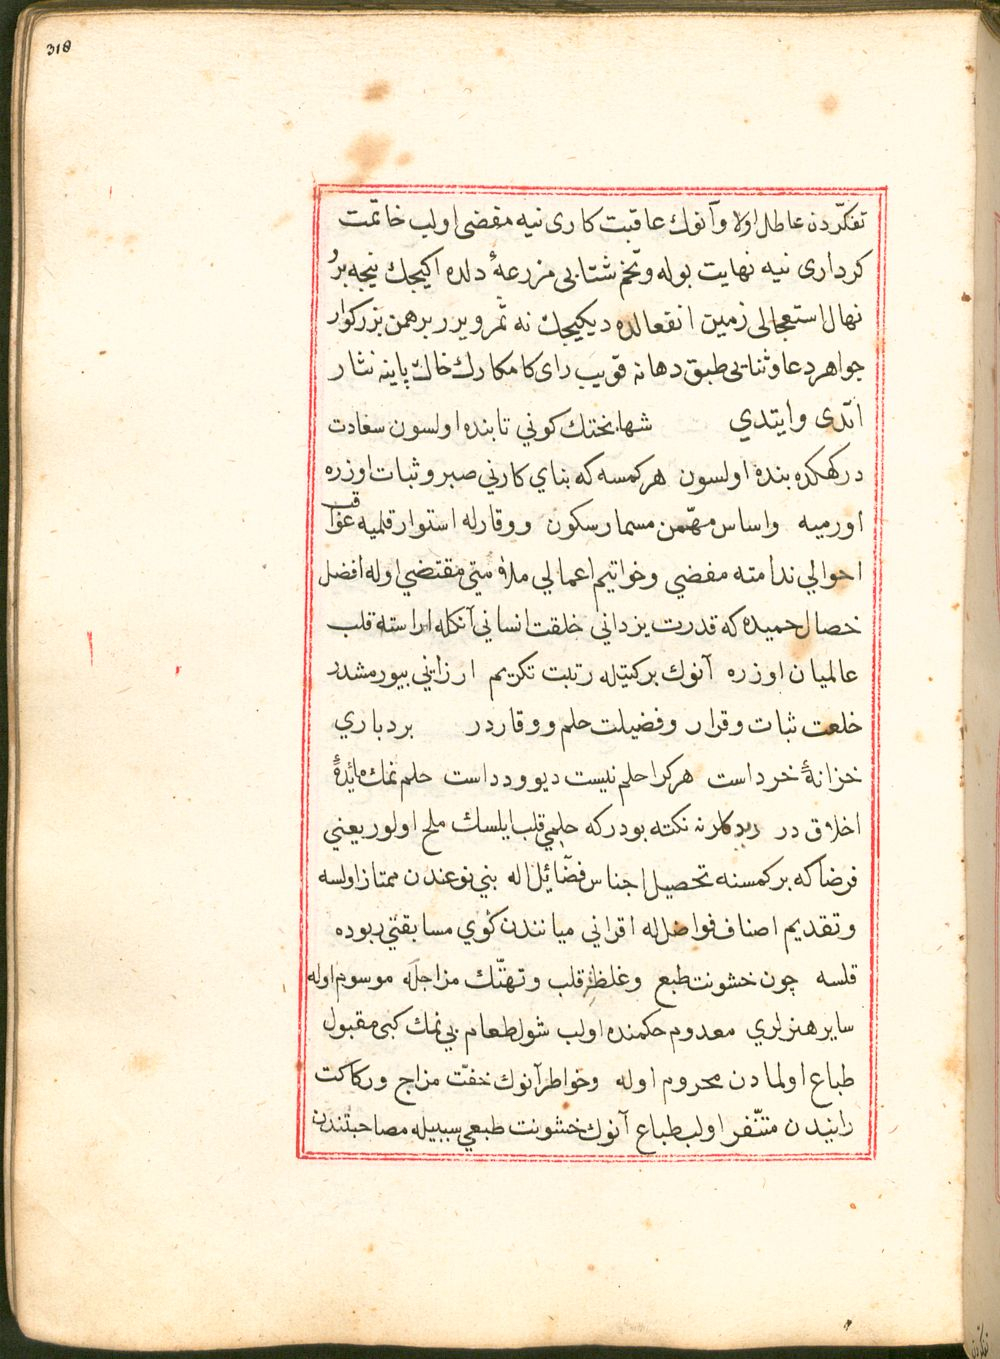 318
تفكّردن عاطل اولا وآنوك عاقبت كارى نيه مفضى اولب خاتمت
كردارى نيه نهايت بوله و تخم شتابى مزرعهٔ دلده اكيجك نيجه برُ
نهال استعجالى زمين انفعالده ديكيجك نه ثمر ويرر برهمن بزركوار
جواهر دعا و ثنايى طبق دهانه قويب راى كامكارك خاك پاينه نثار
اتدى وايتدي شها بختك كوني تابنده اولسون سعادت
دركهكده بنده اولسون هر كمسه كه بناي كارني صبر و ثبات اوزره
اورميه واساس مهمّن مسمار سكون ووقارله استوار قلميه عواقب
احوالي ندامته مفضي وخواتيم اعمالي ملامتي مقتضي اوله افضل
خصال حميده كه قدرت يزداني خلقت انساني آنكله اراسته قلب
عالميان اوزره آنوك بركتيله رتبت تكريم ارزاني بيورمشدر
خلعت ثبات وقرار وفضيلت حلم ووقاردر بردباري
خزانهٔ خرداست هركرا حلم نيست ديو و دد است حلم نمك مائدهٔ
اخلاق در نكته بودر كه حلمي قلب ايلسك ملح اولور يعني
فرضا كه بر كمسنه تحصيل اجناس فضائل اله بني نوعندن ممتاز اولسه
وتقديم اصناف فواضل له اقراني ميانندن كوي مسابقتي ربوده
قلسه چون خشونت طبع وغلظ قلب وتهتّك مزاجله موسوم اوله
ساير هنرلري معدوم حكمنده اولب شول طعام بي نمك كبى مقبول
طباع اولمادن محروم اوله وخواطر آنوك خفّت مزاج وركاكت
رايندن متنّفر اولب طباع آنوك خشونت طبعي سببيله مصاحبتندن